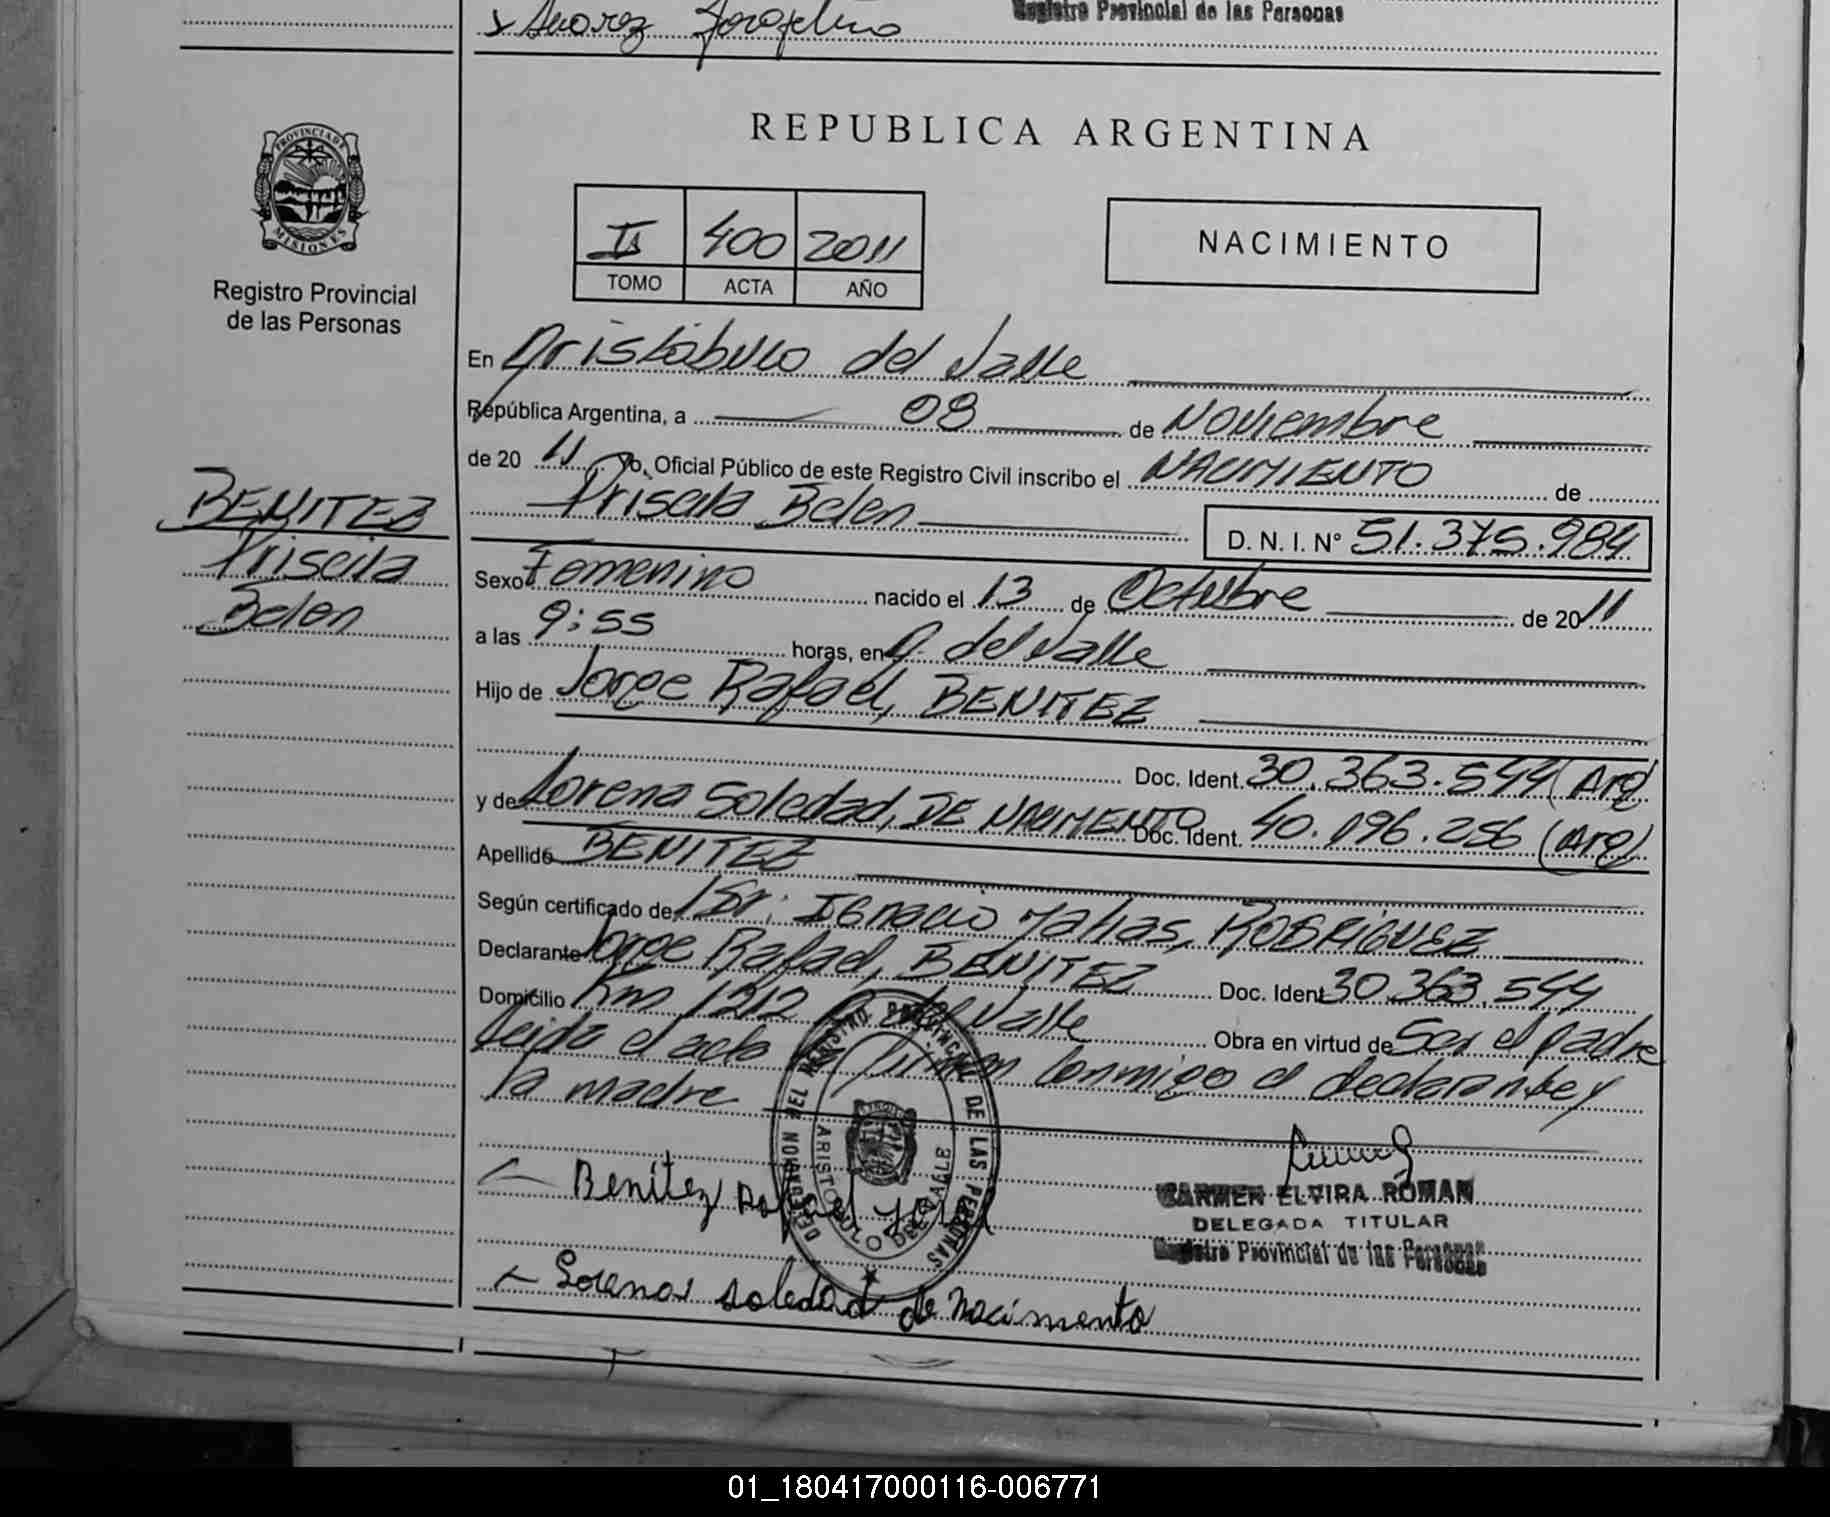 Registro Provincial de las Personas
Suarez
REPUBLICA ARGENTINA
PROVINCIA DE
MISIONES
Registro Provincial
de las Personas
II 400 2011
TOMO ACTA AÑO
NACIMIENTO
En Aristóbulo del Valle
República Argentina, a 08 de Noviembre
de 20 11 Yo, Oficial Público de este Registro Civil inscribo el NACIMIENTO de
Priscila Belen D. N. I. N° 51.375.984
BENITEZ
Priscila
Belen
Sexo Femenino nacido el 13 de Octubre de 20 11
a las 9:55 horas, en A. del Valle
Hijo de Jorge Rafael, BENITEZ
Doc. Ident. 30.363.544 (Arg)
y de Lorena Soledad, DE NACIMENTO Doc. Ident. 40.196.256 (Arg)
Apellido BENITEZ
Según certificado de Dr. Ignacio Matias, RODRIGUEZ
Declarante Jorge Rafael, BENITEZ Doc. Ident 30.363.544
Domicilio Km 1212 A. del Valle Obra en virtud de Ser el padre
Leida el acta la firman conmigo el declarante y
la madre
DELEGACION DEL REGISTRO PROVINCIAL DE LAS PERSONAS
ARISTOBULO DEL VALLE
Benitez Rafael
CARMEN ELVIRA ROMAN
DELEGADA TITULAR
Registro Provincial de las Personas
Lorena soledad de Nacimento
01_180417000116-006771